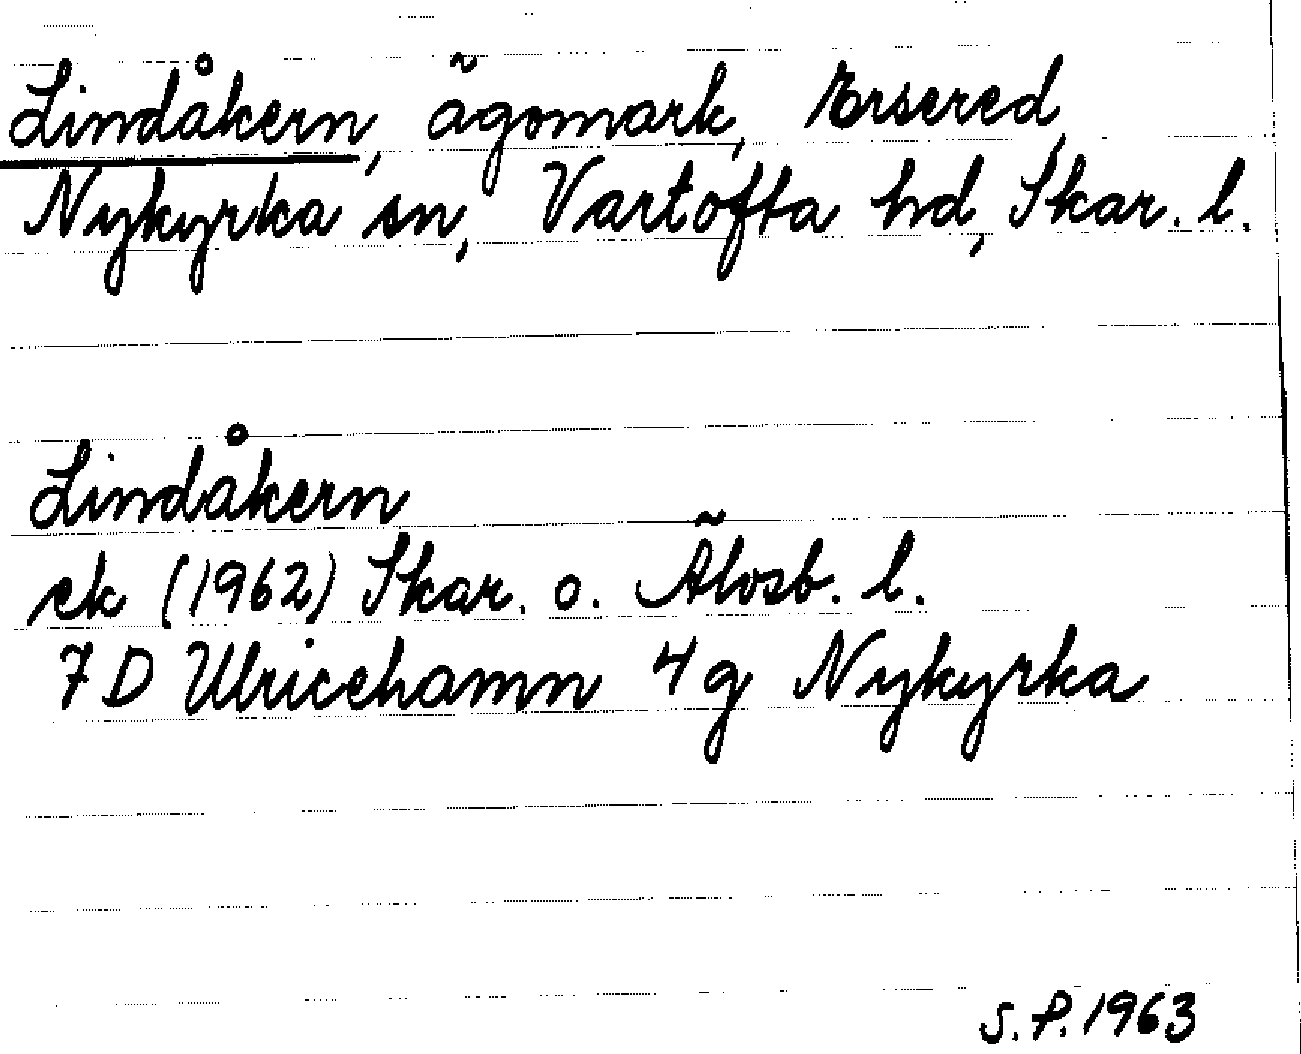 Lindåkern, ägomark, Ersered,
Nykyrka sn, Vartofta hd, Skar. l.
Lindåkern
ek (1962) Skar. o. Älvsb. l.
7 D Ulricehamn 4 g Nykyrka
S. P. 1963